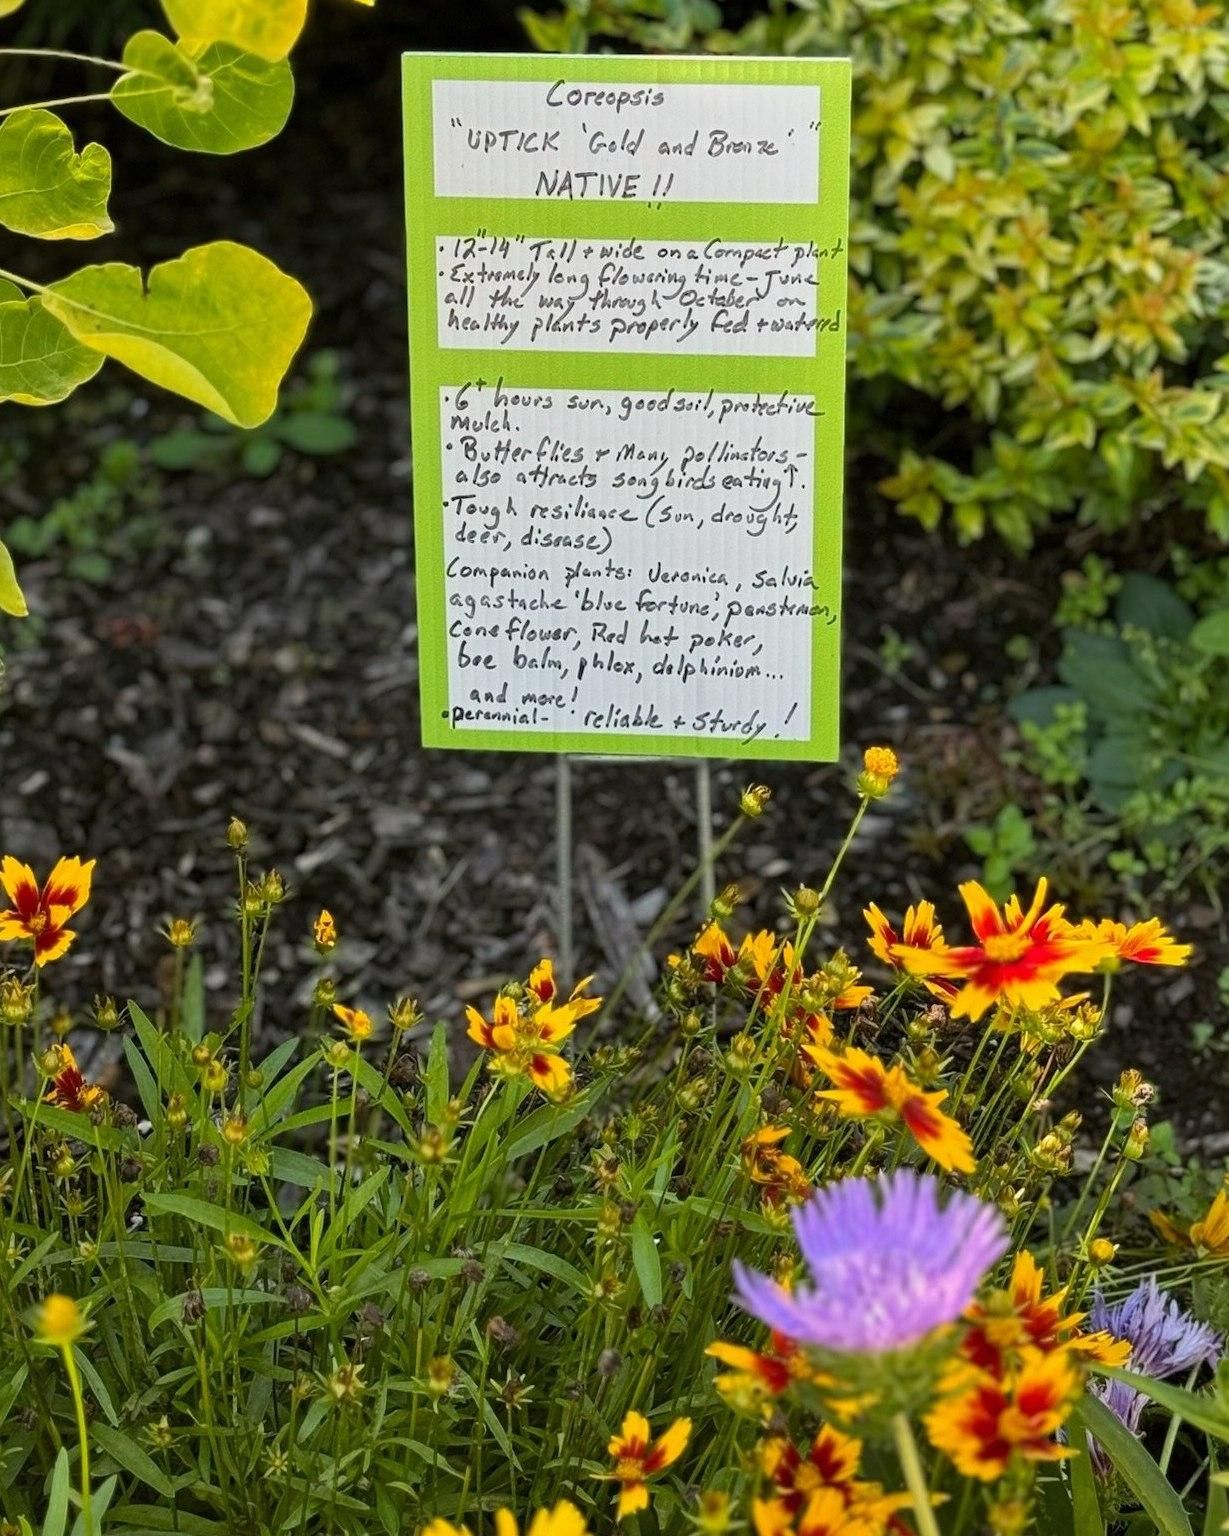 Coreopsis
"UPTICK 'Gold and Bronze'"
NATIVE!!
• 12"-14" Tall + wide on a Compact plant
• Extremely long flowering time - June
all the way through October on
healthy plants properly fed + watered
• 6+ hours sun, good soil, protective
mulch.
• Butterflies + Many pollinators -
also attracts songbirds eating↑.
• Tough resiliance (sun, drought,
deer, disease)
Companion plants: Veronica, Salvia
agastache 'blue fortune', penstemon,
Coneflower, Red hot poker,
bee balm, phlox, delphinium...
and more!
• perennial- reliable + Sturdy!